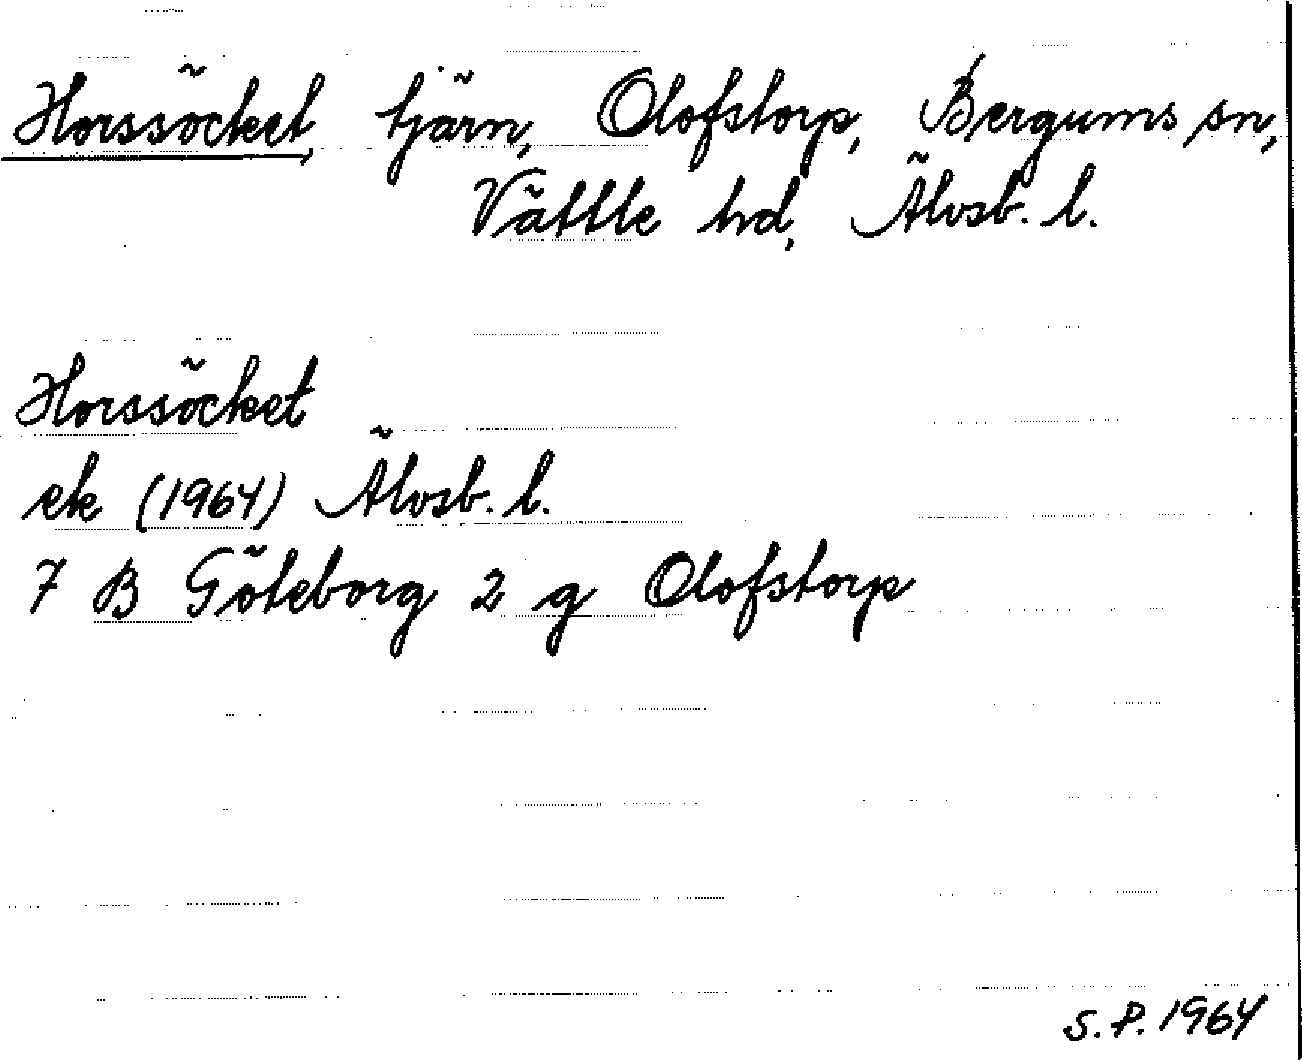 Horssöcket, tjärn, Olofstorp, Bergums sn,
Vättle hd, Älvsb. l.
Horssöcket
ek (1964) Älvsb. l.
7 B Göteborg 2 g Olofstorp
S.P. 1964